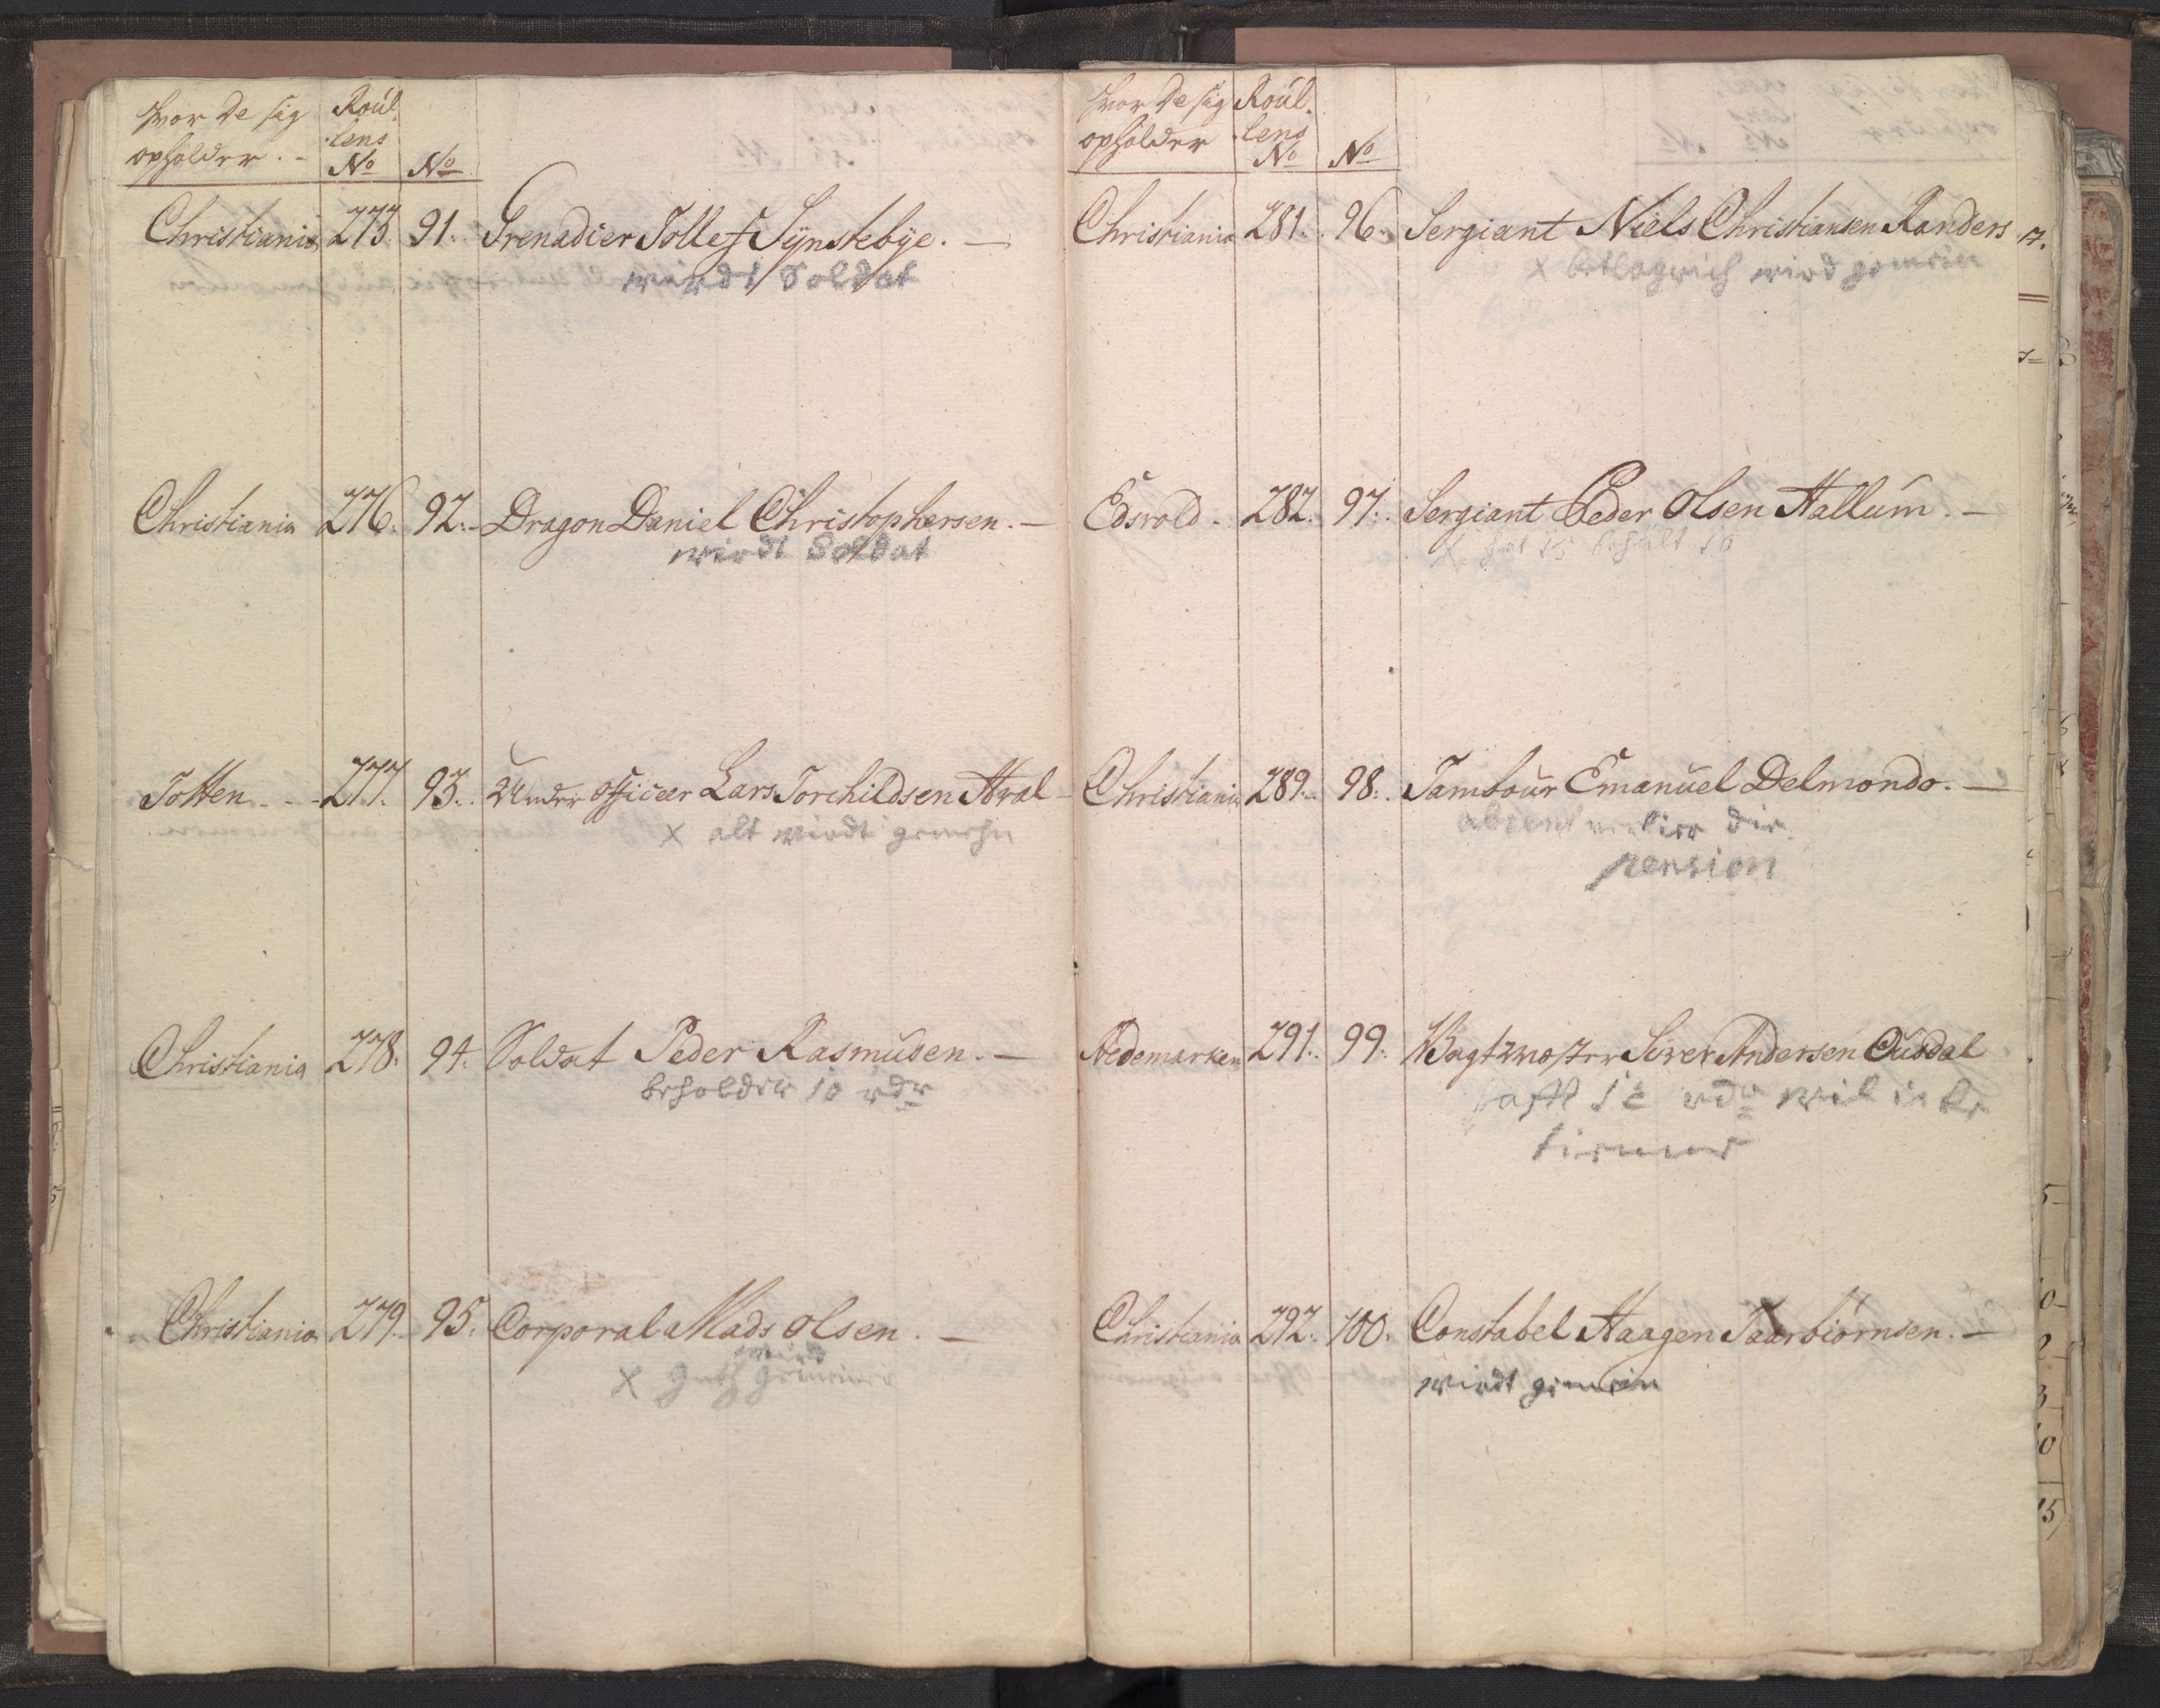 hvor de sig Roul-
opholder. - lens
No No
Christiania 273. 91. Grenadier Tollef Synstebye. —
wirdt Soldat
Christiania 276. 92. Dragon Daniel Christophersen. —
wirdt Soldat
Totten. - - 277. 93. Under officeer Lars Torchildsen Hval —
x alt wirdt gemehn
Christiania 278. 94. Soldat Peder Rasmusen. —
beholder 10 rdr
Christiania 279. 95. Corporal Mads Olsen. —
wird
x
hvor de sig Roul-
opholder lens
No No
Christiania 281. 96. Sergiant Niels Christiansen Randers
x betlagrich wird gemein
Edsvold. 282. 97. Sergiant Peder Olsen Hallum. —
x hat 15 behalt 10
Christiania 289. 98. Tambour Emanuel Delmondo. —
die
pension
Hedemarken 291. 99. Vagtmester Siver Andersen Ousdal
12 rdr
Christiania 292. 100. Constabel Haagen Taarbiörnsen. —
wirdt gemein